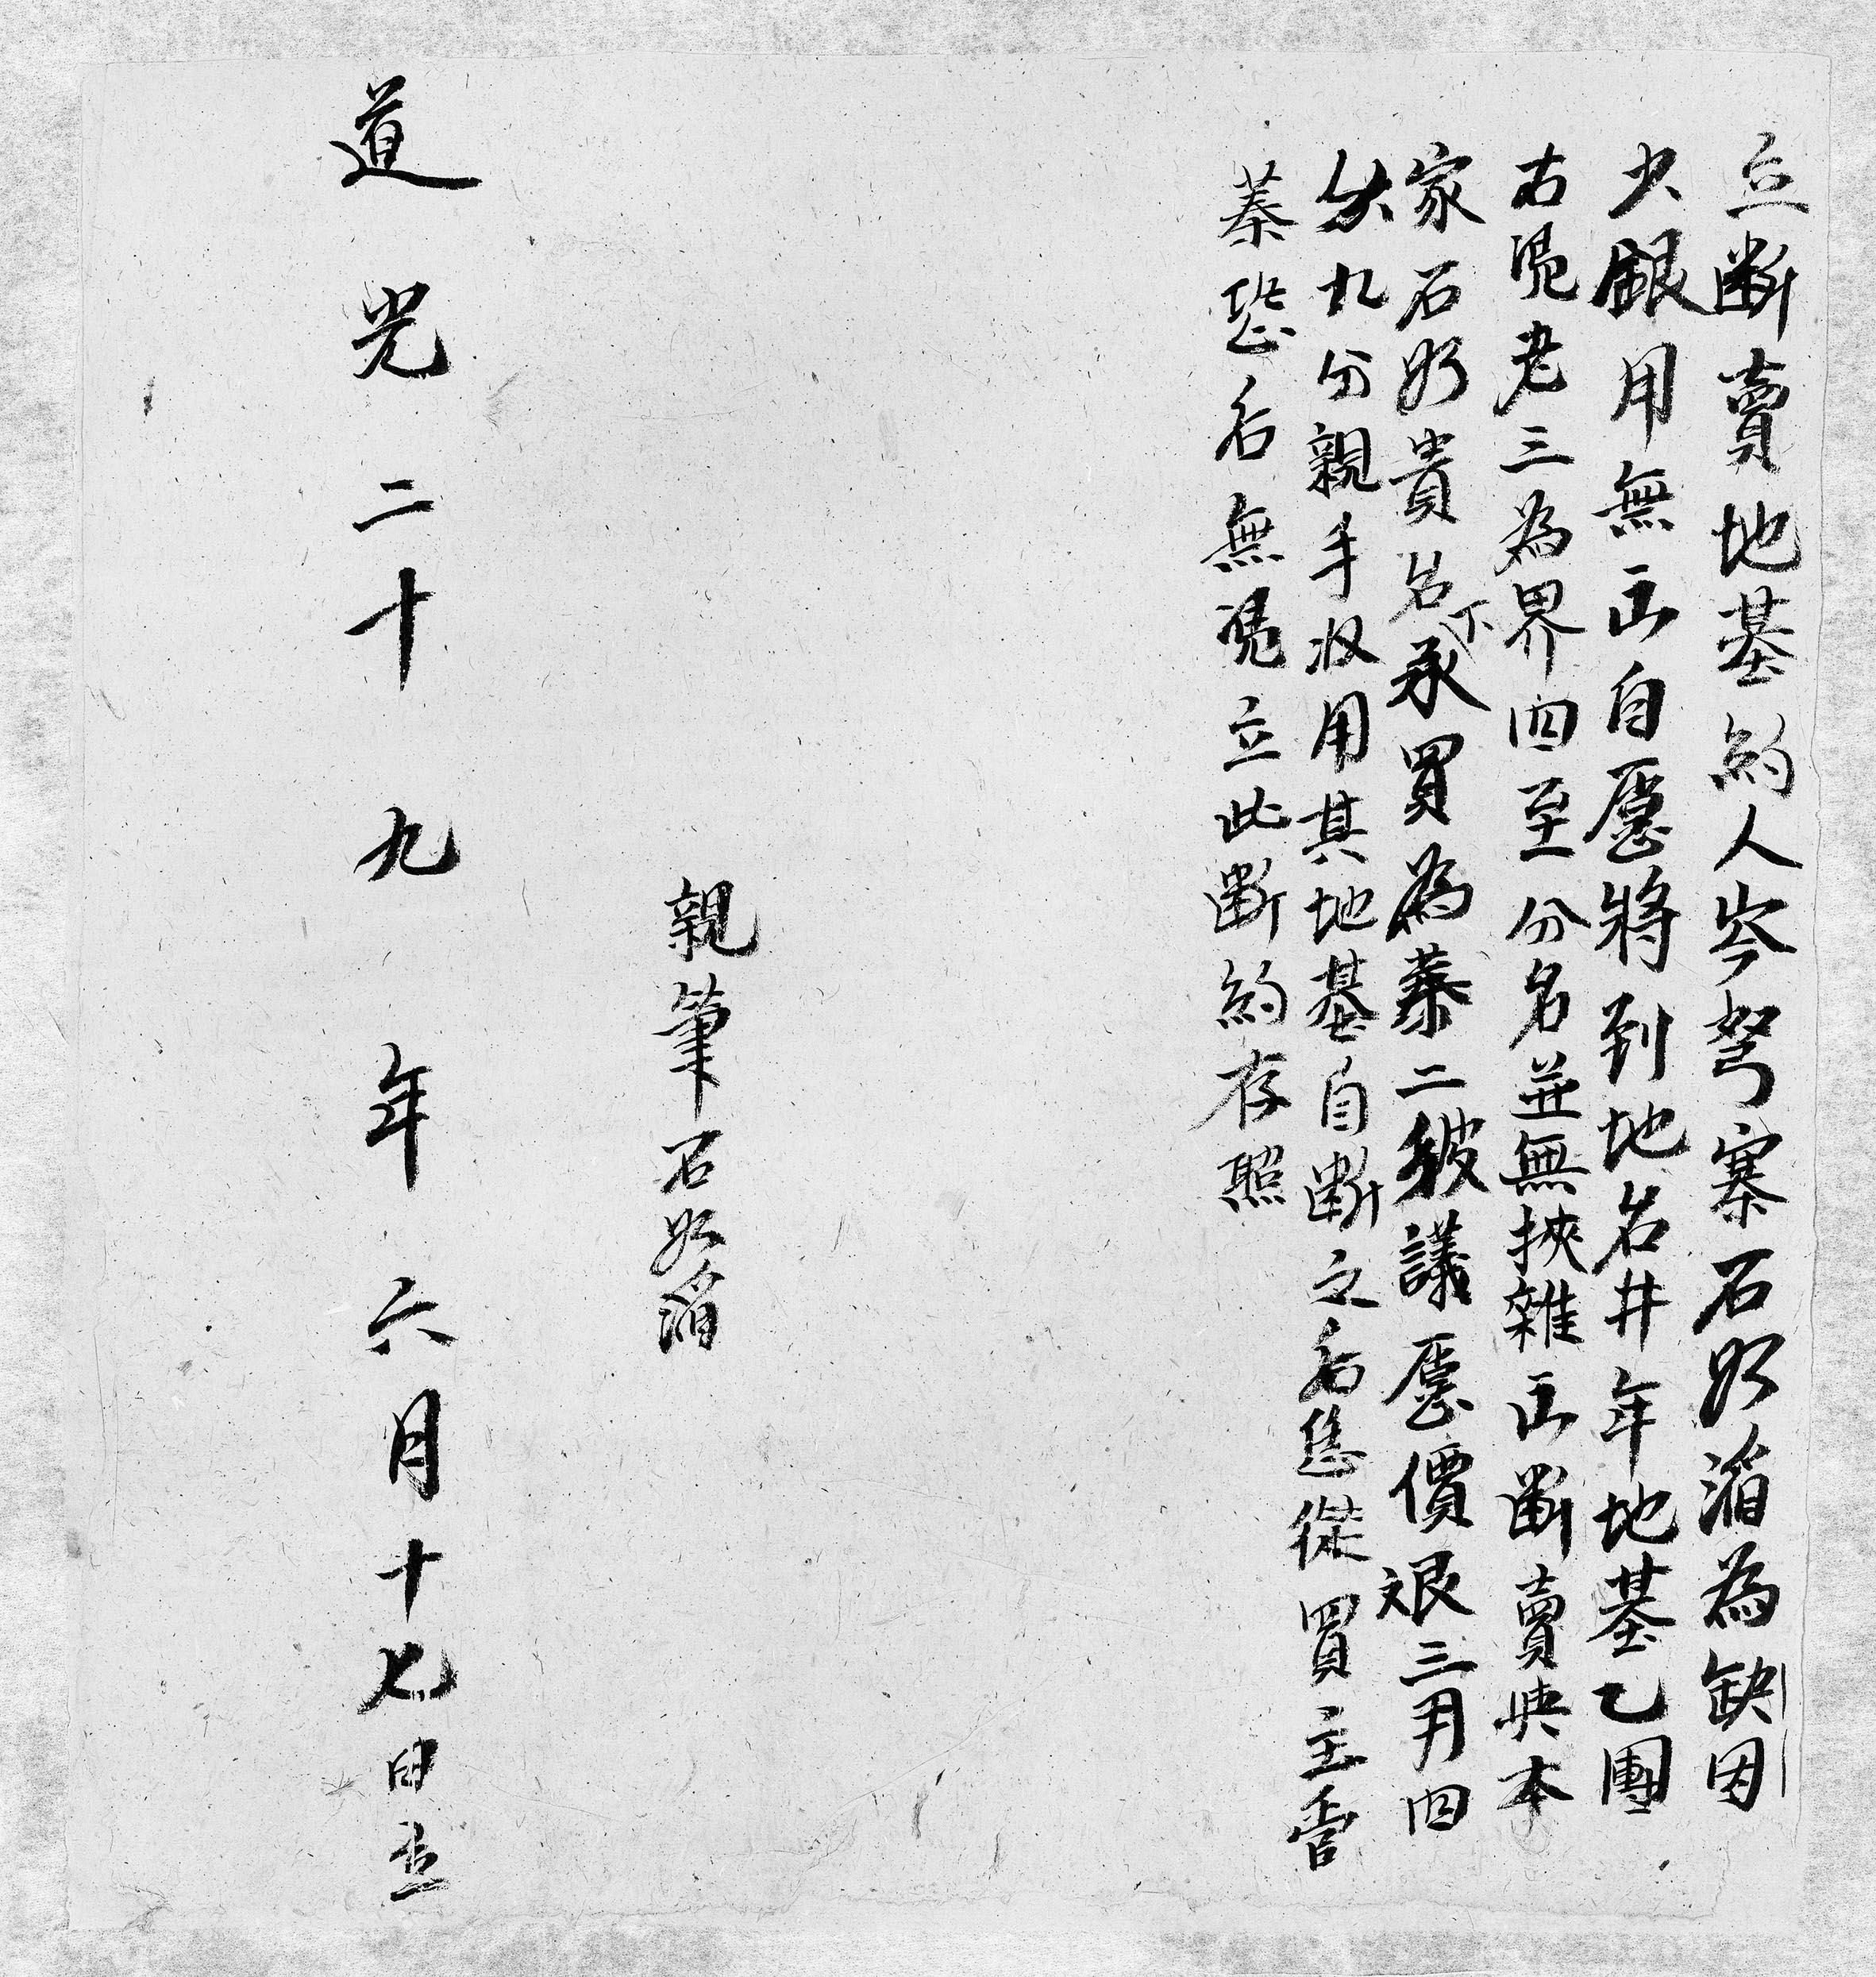 立断賣地基約人岑弩寨石班湽為缺因
少銀用無㕁自愿將到地名井年地基乙團
右凴老三為界四至分名並無挾雜㕁断賣典本
家石班貴名下承買為蓁二彼議愿價艮三月四
𠂇九分親手收用其地基自断之后恁從買主管
蓁恐后無凴立此断約存照
親筆石班湽
道光二十九年六月十七日立